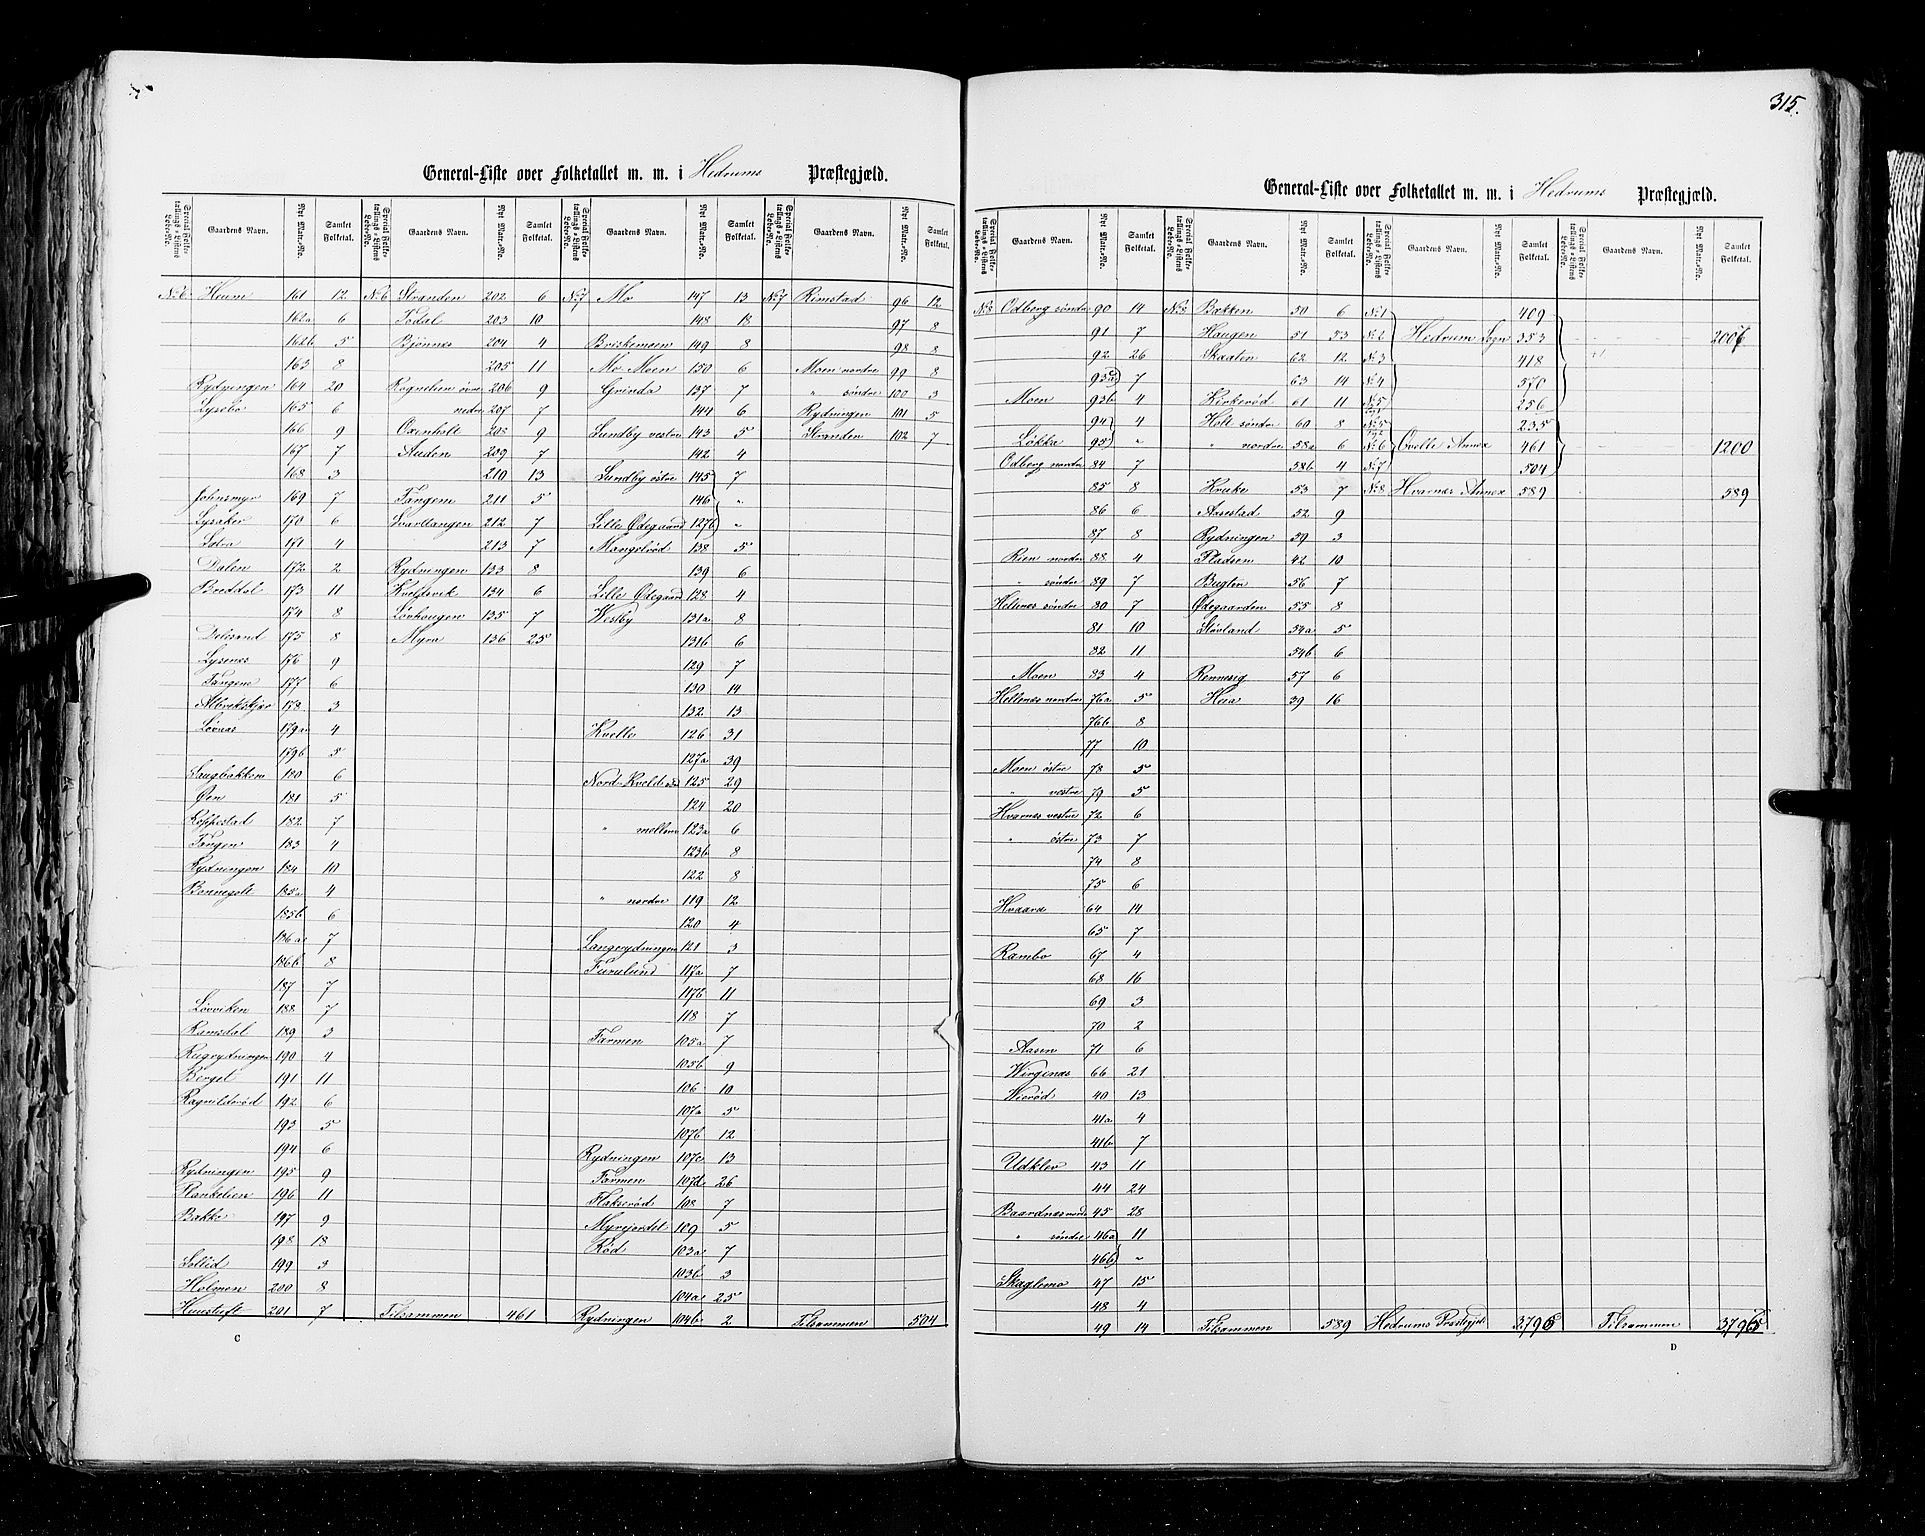 315.
General-Liste over Folketallet m. m. i Hedrums Præstegjæld.
Special Folketællings-Listens Løbe-No. Gaardens Navn. Nyt Matr.-No. Samlet Folketal. Special Folketællings-Listens Løbe-No. Gaardens Navn. Nyt Matr.-No. Samlet Folketal. Special Folketællings-Listens Løbe-No. Gaardens Navn. Nyt Matr.-No. Samlet Folketal. Special Folketællings-Listens Løbe-No. Gaardens Navn. Nyt Matr.-No. Samlet Folketal.
No 6 Heum 161 12 No 6 Stranden 202 6 No 7 Mo 147 13 No 7 Rimstad 96 12
162a 6 Todal 203 10 148 18 97 8
162b 5 Bjønnes 204 4 Briskemoen 149 8 98 8
163 8 205 11 Mo Moen 150 6 Moen nordre 99 8
Rydningen 164 20 Rognelien øvre 206 9 Grinda 137 7 " søndre 100 3
Lysebo 165 6 nedre 207 7 144 6 Rydningen 101 5
166 9 Oxenholt 208 9 Sundby vestre 143 5 Stranden 102 7
167 7 Auden 209 7 142 4
168 3 210 13 Sundby østre 145 7
Johnsmyr 169 7 Tangen 211 5 146 "
Lysaker 170 6 Svartangen 212 7 Lille Ødegaard 127b "
171 4 213 7 138 5
Dalen 172 2 Rydningen 133 8 139 6
Breddal 173 11 Kveldevik 134 6 Lille Ødegaard 128 4
174 8 Løvhougen 135 7 Westby 131a 8
175 8 Myra 136 25 131b 6
Lysenes 176 9 129 7
Tangen 177 6 130 14
178 3 132 13
Løvnæs 179a 4 Kvelle 126 31
179b 5 127a 39
Saugbakken 180 6 Nord-Kvelde 125 29
Øen 181 5 124 20
Koppestad 182 7 " mellem 123a 6
Tangen 183 4 123b 8
Rydningen 184 10 122 8
Bonnegolt 185a 4 " nordre 119 12
185b 6 120 4
186a 7 Langerydningen 121 3
186b 8 Furulund 117a 7
187 7 117b 11
Løvviken 188 7 118 7
Ramsdal 189 3 Farmen 105a 7
Rugrydningen 190 4 105b 9
Berget 191 11 106 10
Ragnilderød 192 6 107a 5
193 5 107b 12
194 6 Rydningen 107c 13
Rydningen 195 9 Farmen 107d 26
Plankelien 196 11 Flakserød 108 7
Bakke 197 9 Myrejordet 109 5
198 18 Rød 103a 7
Sollid 199 3 103b 3
Holmen 200 8 104a 25
201 7 Tilsammen 461 Rydningen 104b 2 Tilsammen 504
C
General-Liste over Folketallet m. m. i Hedrums Præstegjæld.
Special Folketællings-Listens Løbe-No. Gaardens Navn. Nyt Matr.-No. Samlet Folketal. Special Folketællings-Listens Løbe-No. Gaardens Navn. Nyt Matr.-No. Samlet Folketal. Special Folketællings-Listens Løbe-No. Gaardens Navn. Nyt Matr.-No. Samlet Folketal. Special Folketællings-Listens Løbe-No. Gaardens Navn. Nyt Matr.-No. Samlet Folketal.
No 8 Odberg søndre 90 14 No 8 Bakken 50 6 No 1 409
91 7 Haugen 51 53 No 2 Hedrum Sogn 353 2006
92 26 Skaalen 62 12 No 3 418
93a 7 63 14 No 4 570
Moen 93b 4 Kirkerød 61 11 No 5 256
94 4 Holt søndre 60 8 No 5 235
Løkka 95 " " nordre 58a 6 No 6 Qvelle Annex 461 1200
Odberg nordre 84 7 58b 4 No 7 504
85 8 Kruke 53 7 No 8 Hvarnes Annex 589 589
86 6 Aasestad 52 9
87 8 Rydningen 59 3
Rien nordre 88 4 Pladsen 42 10
" søndre 89 7 56 7
Hellenes søndre 80 7 Ødegaarden 55 8
81 10 Støvland 54a 5
82 11 54b 6
Moen 83 4 Rennesig 57 6
Hellenes nordre 76a 5 39 16
76b 8
77 10
Moen østre 78 5
" vestre 79 5
Hvarnes vestre 72 6
" østre 73 7
74 8
75 6
Hvaara 64 14
65 7
Rambo 67 4
68 16
69 3
70 2
Aasen 71 6
66 21
Wierød 40 13
41a 4
41b 7
Udklev 43 11
44 24
Baardnes nordre 45 28
" søndre 46a 11
46b "
Skaglemo 47 15
48 4
49 14 Tilsammen 589 Hedrums Præstegjeld 3795 Tilsammen 3795
D